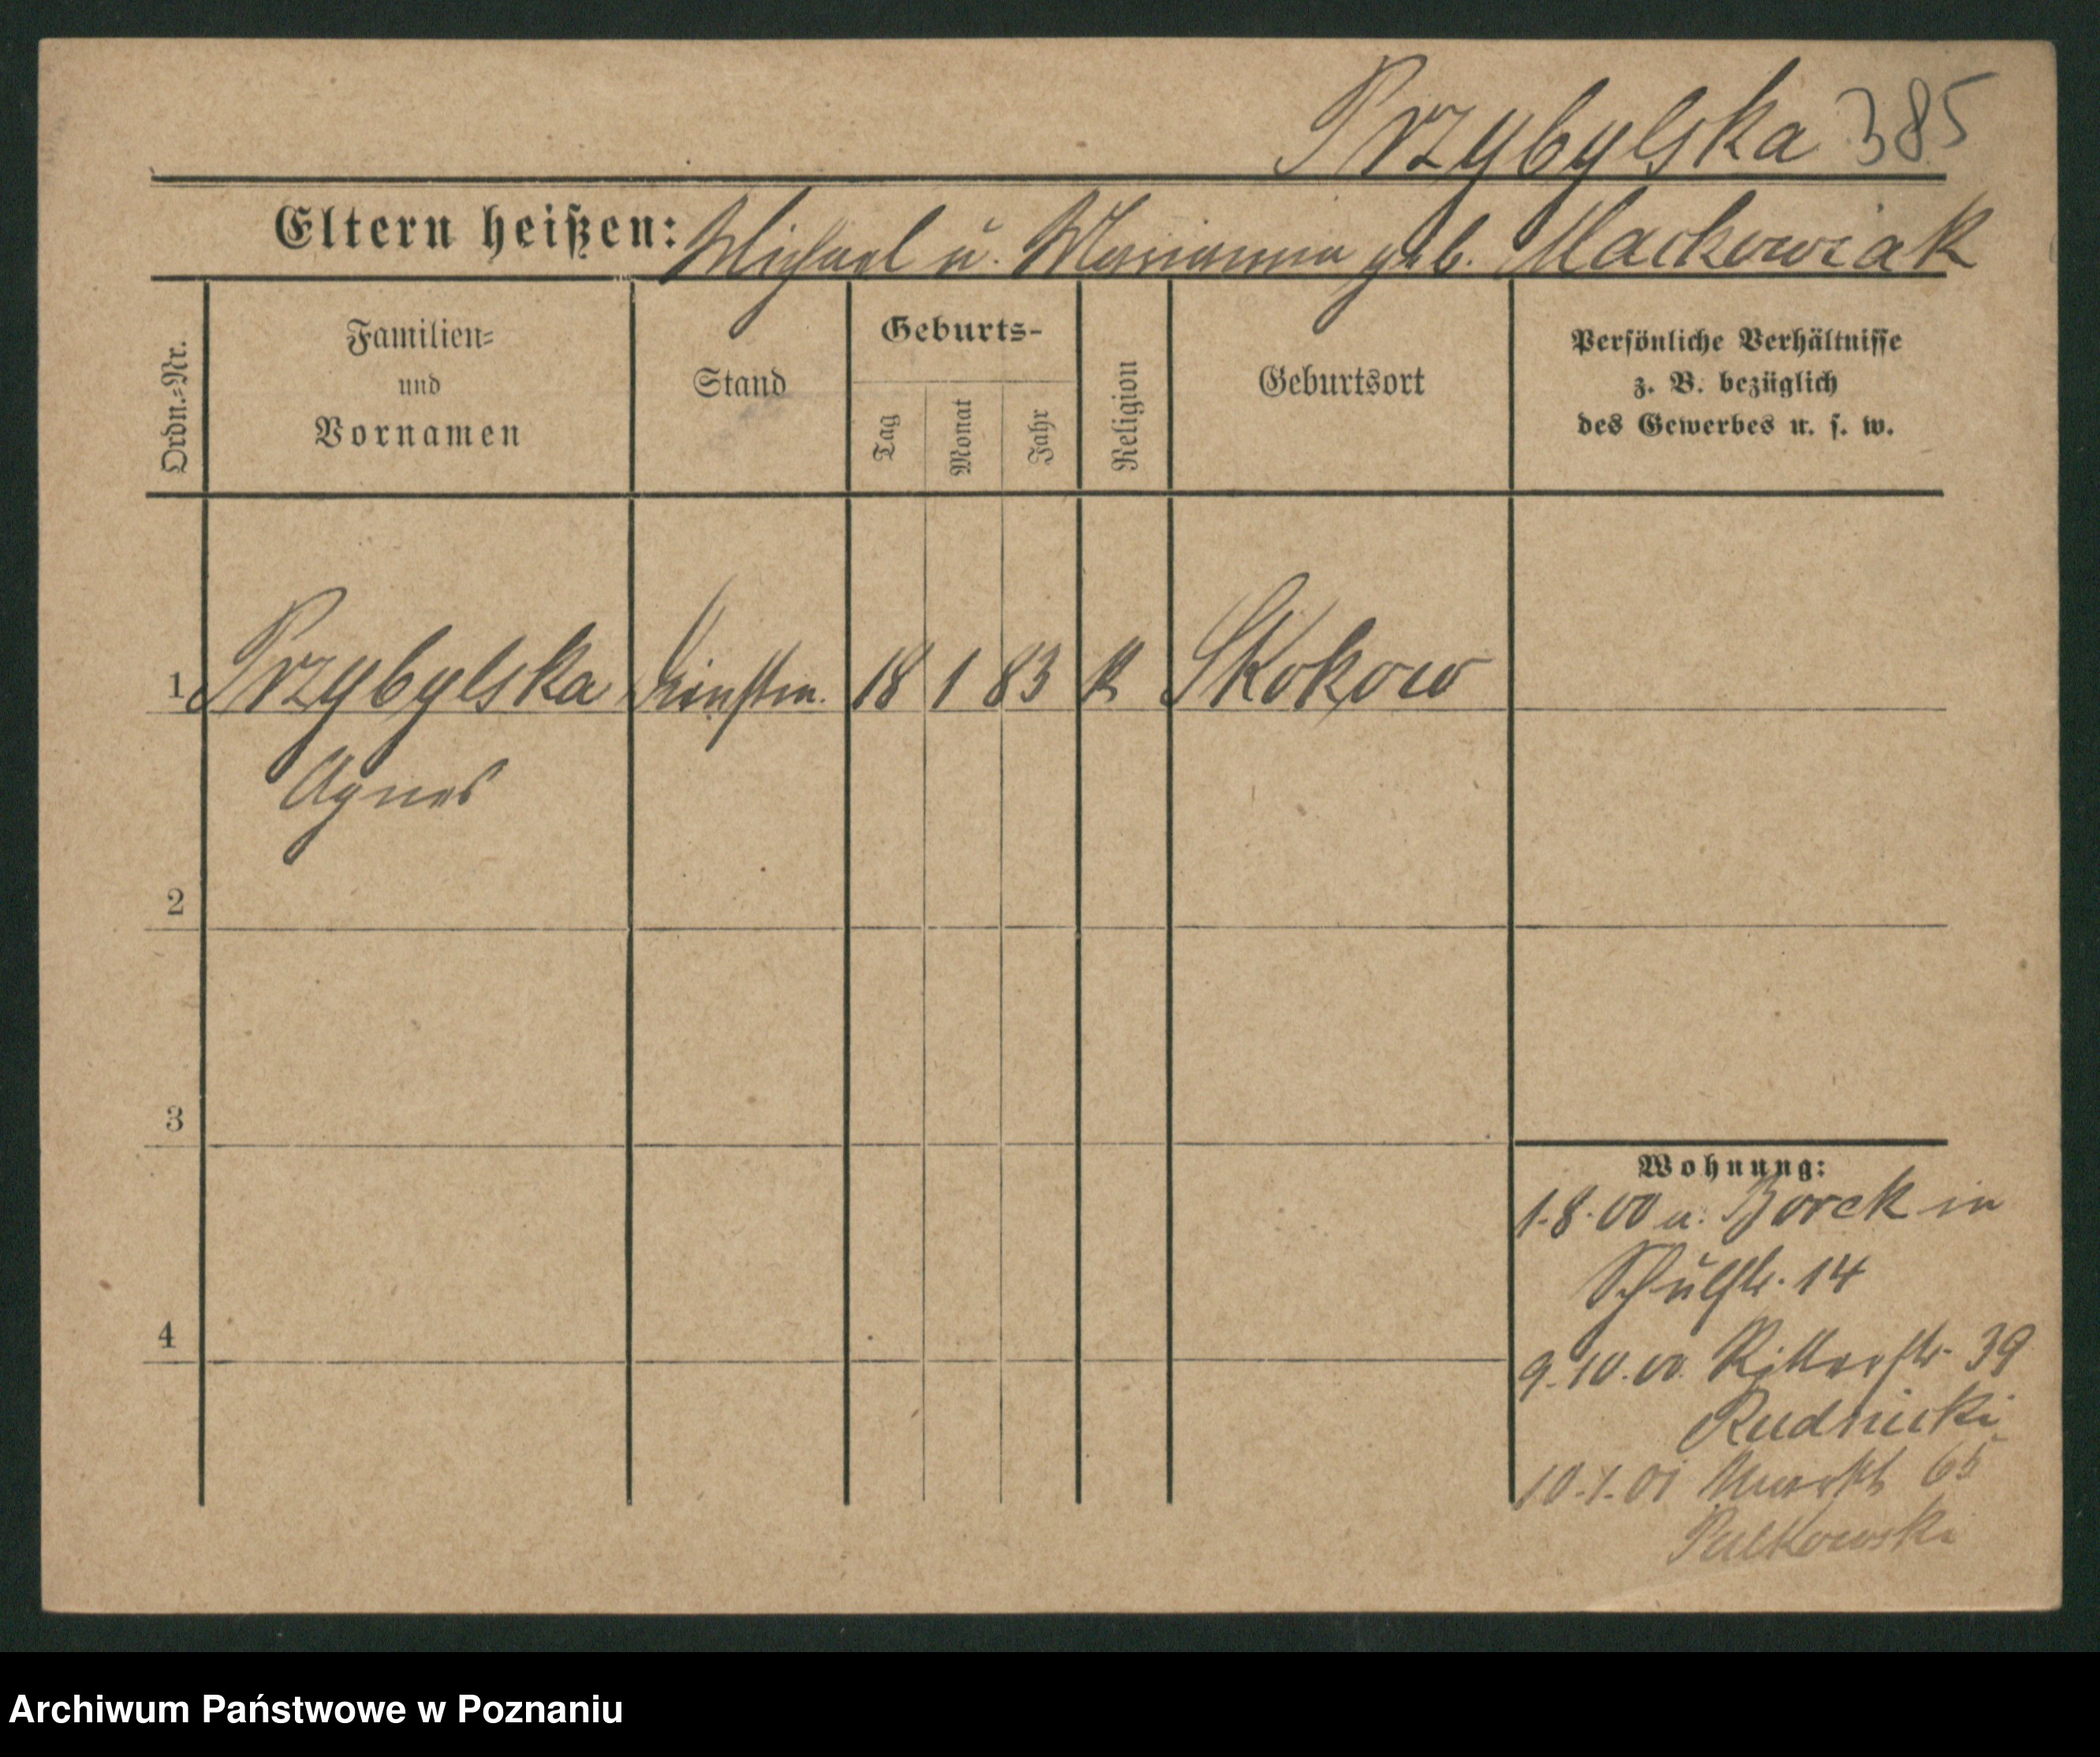 Przybylska 385
Eltern heißen: Michael u. Marianna geb. Mackowiak
Ordn.-Nr.
Familien-
und
Vornamen
Stand
Geburts-
Tag
Monat
Jahr
Religion
Geburtsort
Persönliche Verhältnisse
z. B. bezüglich
des Gewerbes u. s. w.
1 Przybylska Dienstm. 18 1 83 k Skokow
Agnes
2
3
4
Wohnung:
1.8.00 a. Borek in
Schulstr. 14
9.10.00. Ritterstr. 39
Rudnicki
10.1.01 Markt 65
Archiwum Państwowe w Poznaniu